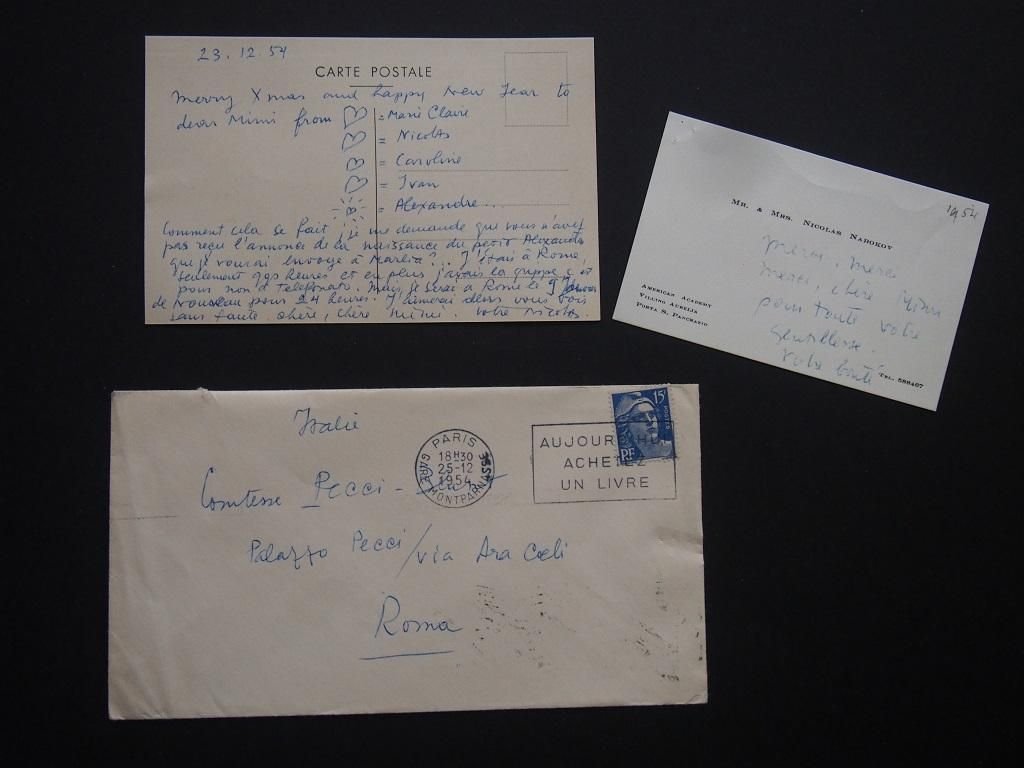 23.12.54
CARTE POSTALE
Merry Xmas and happy New Year to
dear Mimi from = Marie Claire
= Nicolas
= Caroline
= Ivan
= Alexandre...
Comment cela se fait, je me demande que vous n'avez
pas reçu l'annonce de la naissance du petit Alexandre
que je vous ai envoyé à Marlia?.. J'étais à Rome,
seulement heures et en plus j'avais la grippe c et
pour non à telefonato. Mais je serai à Rome le 9
de nouveau pour 24 heures. J'aimerai vous voir
sans faute. chère, chère Mimi. Votre Nicolas.
1954
MR. & MRS. NICOLAS NABOKOV
merci, merci
merci, chère Mimi
pour toute votre
gentillesse.
votre bonté
AMERICAN ACADEMY
VILLINO AURELIA
PORTA S. PANCRAZIO
TEL. 588407
Italie
PARIS
18H30
25-12
1954
GARE MONTPARNASSE
AUJOURD'HUI
ACHETEZ
UN LIVRE
15F
POSTES
RF
Comtesse Pecci-
Palazzo Pecci/via Ara Cœli
Roma